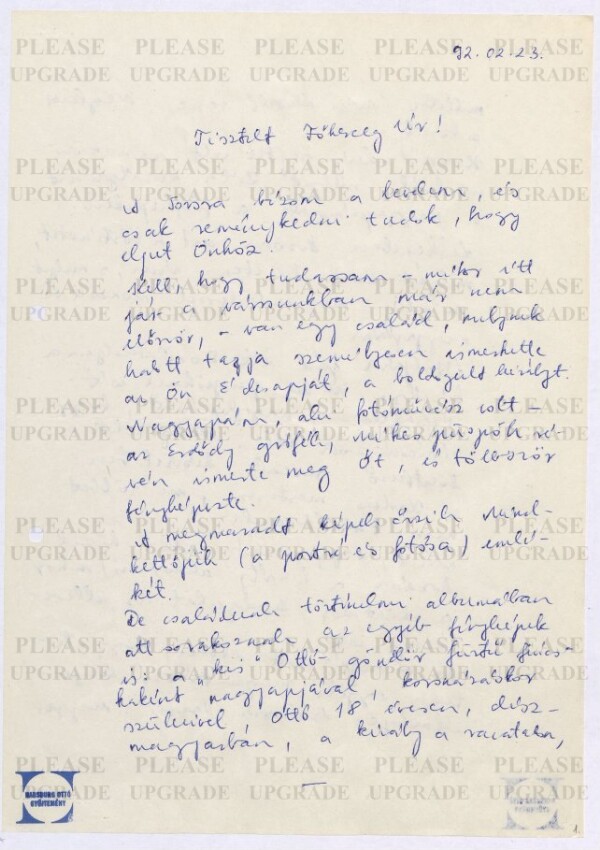 92.02.23.
Tisztelt Főherceg Úr!
A sorsra bízom a levelem, és
csak reménykedni tudok, hogy
eljut Önhöz.
Kell, hogy tudassam – mikor itt
jár a városunkban már nem
először, – van egy család, melynek
halott tagja személyesen ismerhette
az Ön Édesapját, a boldogult királyt.
Nagyapám, aki fotóművész volt –
az Erdődy grófék, Mikes püspök ré-
vén ismerte meg Őt, és többször
fényképezte.
A megmaradt képek őrzik mind-
kettőjük (a portré és fotósa) emlé-
két.
De családunk történelmi albumában
ott sorakoznak az egyéb fényképek
is: a „kis" Ottó göndör fürtű fiúcs-
kaként nagyapjával, koronázáskor
szüleivel, Ottó 18 évesen, dísz-
magyarban, a király a ravatalon,
HABSBURG OTTÓ
GYŰJTEMÉNY
1